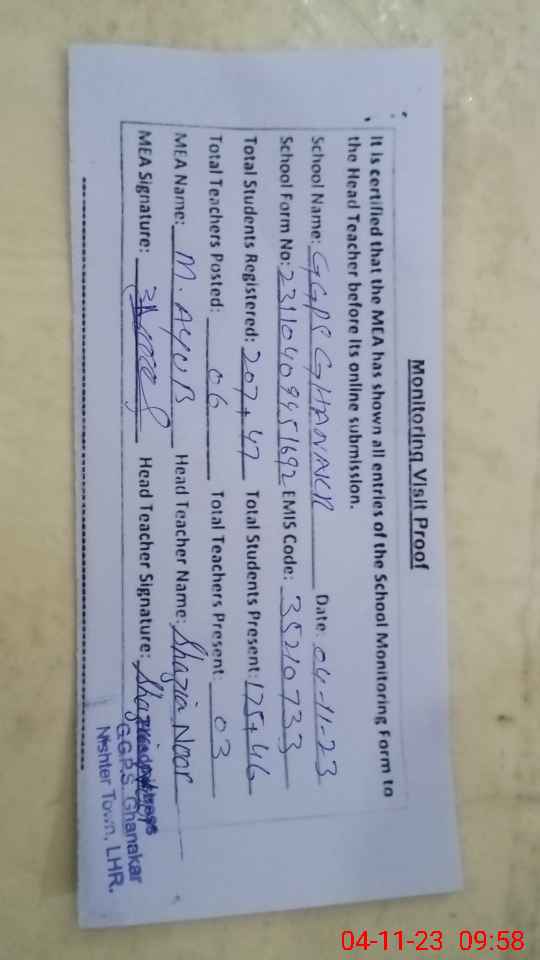 Monitoring Visit Proof
It is certified that the MEA has shown all entries of the School Monitoring Form to
the Head Teacher before its online submission.
School Name: GGPS GHANAKR Date: 04-11-23
School Form No: 231104099451692 EMIS Code: 35210733
Total Students Registered: 207+47 Total Students Present: 175+46
Total Teachers Posted: 06 Total Teachers Present: 03
MEA Name: M. AYUB Head Teacher Name: Shazia Noor
MEA Signature: Head Teacher Signature: Shazia
Headmistress
G.G.P.S. Ghanakar
Nishter Town, LHR.
04-11-23 09:58